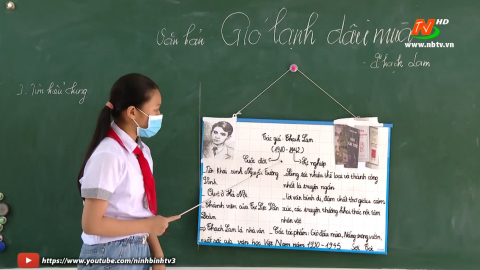 Văn bản Gió lạnh đầu mùa
Thạch Lam
I. Tìm hiểu chung
Tác giả Thạch Lam
(1910-1942)
Cuộc đời
Sự nghiệp
Tên khai sinh Nguyễn Tường Vinh
Quê ở Hà Nội
Thành viên của Tự Lực Văn Đoàn
Thạch Lam là nhà văn xuất sắc của văn học Việt Nam năm 1930-1945
Sáng tác nhiều thể loại và thành công nhất là truyện ngắn
Lời văn bình dị, đậm chất thơ giàu cảm xúc, các thường khai thác nội tâm nhân vật
Các tác phẩm: Gió đầu mùa, Nắng trong vườn, Sợi tóc
NTV HD
www.nbtv.vn
https://www.youtube.com/ninhbinhtv3